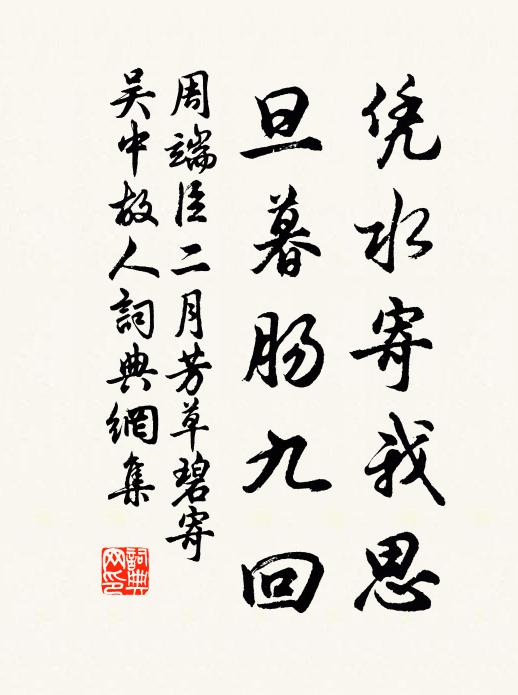 凭水寄我思
旦暮肠九回
周端臣二月芳草碧寄
吴中故人詞典網集
詞典
网印